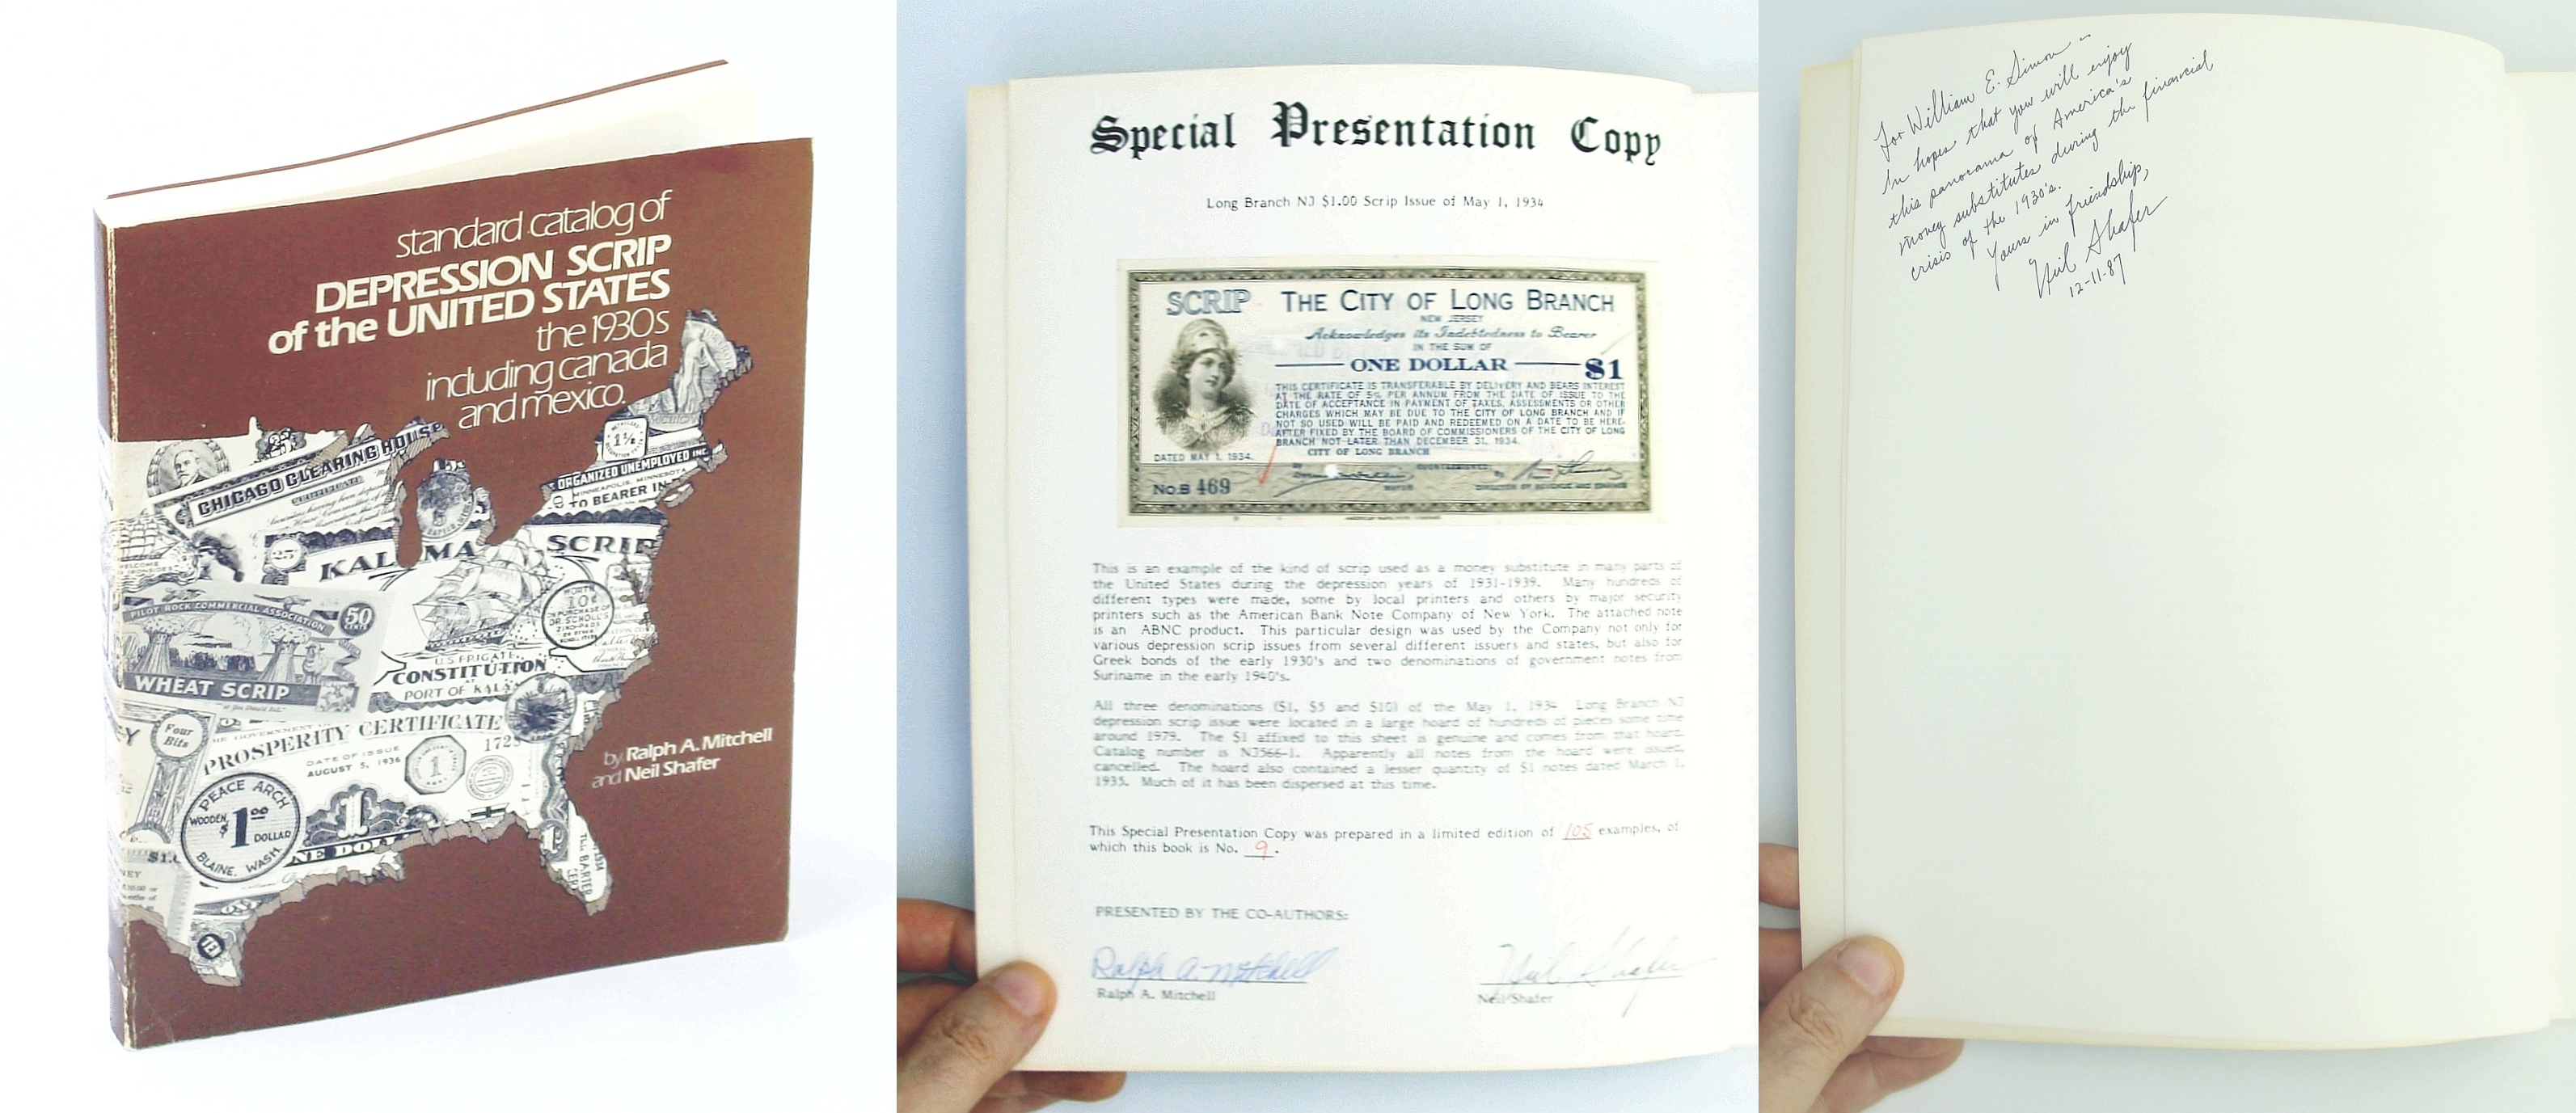 standard catalog of
DEPRESSION SCRIP
of the UNITED STATES
the 1930s
including canada
and mexico.
CHICAGO CLEARING HOUSE
CERTIFICATE
1½
ORGANIZED UNEMPLOYED INC.
MINNEAPOLIS, MINNESOTA
TO BEARER IN
25¢
KALAMA SCRIP
WELCOME
IRONSIDES
PILOT ROCK COMMERCIAL ASSOCIATION
50
WHEAT SCRIP
WORTH
10¢
ON PURCHASE OF
DR. SCHOLL'S
ZINO-PADS
U.S. FRIGATE
CONSTITUTION
AT
PORT OF KALAMA
Four
Bits
PROSPERITY CERTIFICATE
DATE OF ISSUE
AUGUST 5, 1936
1
1729
PEACE ARCH
WOODEN $1.00 DOLLAR
BLAINE, WASH.
1
ONE DOLLAR
THE BARTER
by Ralph A. Mitchell
and Neil Shafer
Special Presentation Copy
Long Branch NJ $1.00 Scrip Issue of May 1, 1934
SCRIP THE CITY OF LONG BRANCH
NEW JERSEY
Acknowledges its Indebtedness to Bearer
IN THE SUM OF
ONE DOLLAR $1
THIS CERTIFICATE IS TRANSFERABLE BY DELIVERY AND BEARS INTEREST
AT THE RATE OF 5% PER ANNUM FROM THE DATE OF ISSUE TO THE
DATE OF ACCEPTANCE IN PAYMENT OF TAXES, ASSESSMENTS OR OTHER
CHARGES WHICH MAY BE DUE TO THE CITY OF LONG BRANCH AND IF
NOT SO USED WILL BE PAID AND REDEEMED ON A DATE TO BE HERE-
AFTER FIXED BY THE BOARD OF COMMISSIONERS OF THE CITY OF LONG
BRANCH NOT LATER THAN DECEMBER 31, 1934.
DATED MAY 1, 1934. CITY OF LONG BRANCH
By COUNTERSIGNED: By
No.B 469 MAYOR DIRECTOR OF REVENUE AND FINANCE
AMERICAN BANK NOTE COMPANY
This is an example of the kind of scrip used as a money substitute in many parts of
the United States during the depression years of 1931-1939. Many hundreds of
different types were made, some by local printers and others by major security
printers such as the American Bank Note Company of New York. The attached note
is an ABNC product. This particular design was used by the Company not only for
various depression scrip issues from several different issuers and states, but also for
Greek bonds of the early 1930's and two denominations of government notes from
Suriname in the early 1940's.
All three denominations ($1, $5 and $10) of the May 1, 1934 Long Branch NJ
depression scrip issue were located in a large hoard of hundreds of pieces some time
around 1979. The $1 affixed to this sheet is genuine and comes from that hoard.
Catalog number is NJ566-1. Apparently all notes from the hoard were issued,
cancelled. The hoard also contained a lesser quantity of $1 notes dated March 1,
1935. Much of it has been dispersed at this time.
This Special Presentation Copy was prepared in a limited edition of 105 examples, of
which this book is No. 9.
PRESENTED BY THE CO-AUTHORS:
Ralph A. Mitchell Neil Shafer
Ralph A. Mitchell Neil Shafer
For William E. Simon -
In hopes that you will enjoy
this panorama of America's
money substitutes during the financial
crisis of the 1930's.
Yours in friendship,
Neil Shafer
12-11-87